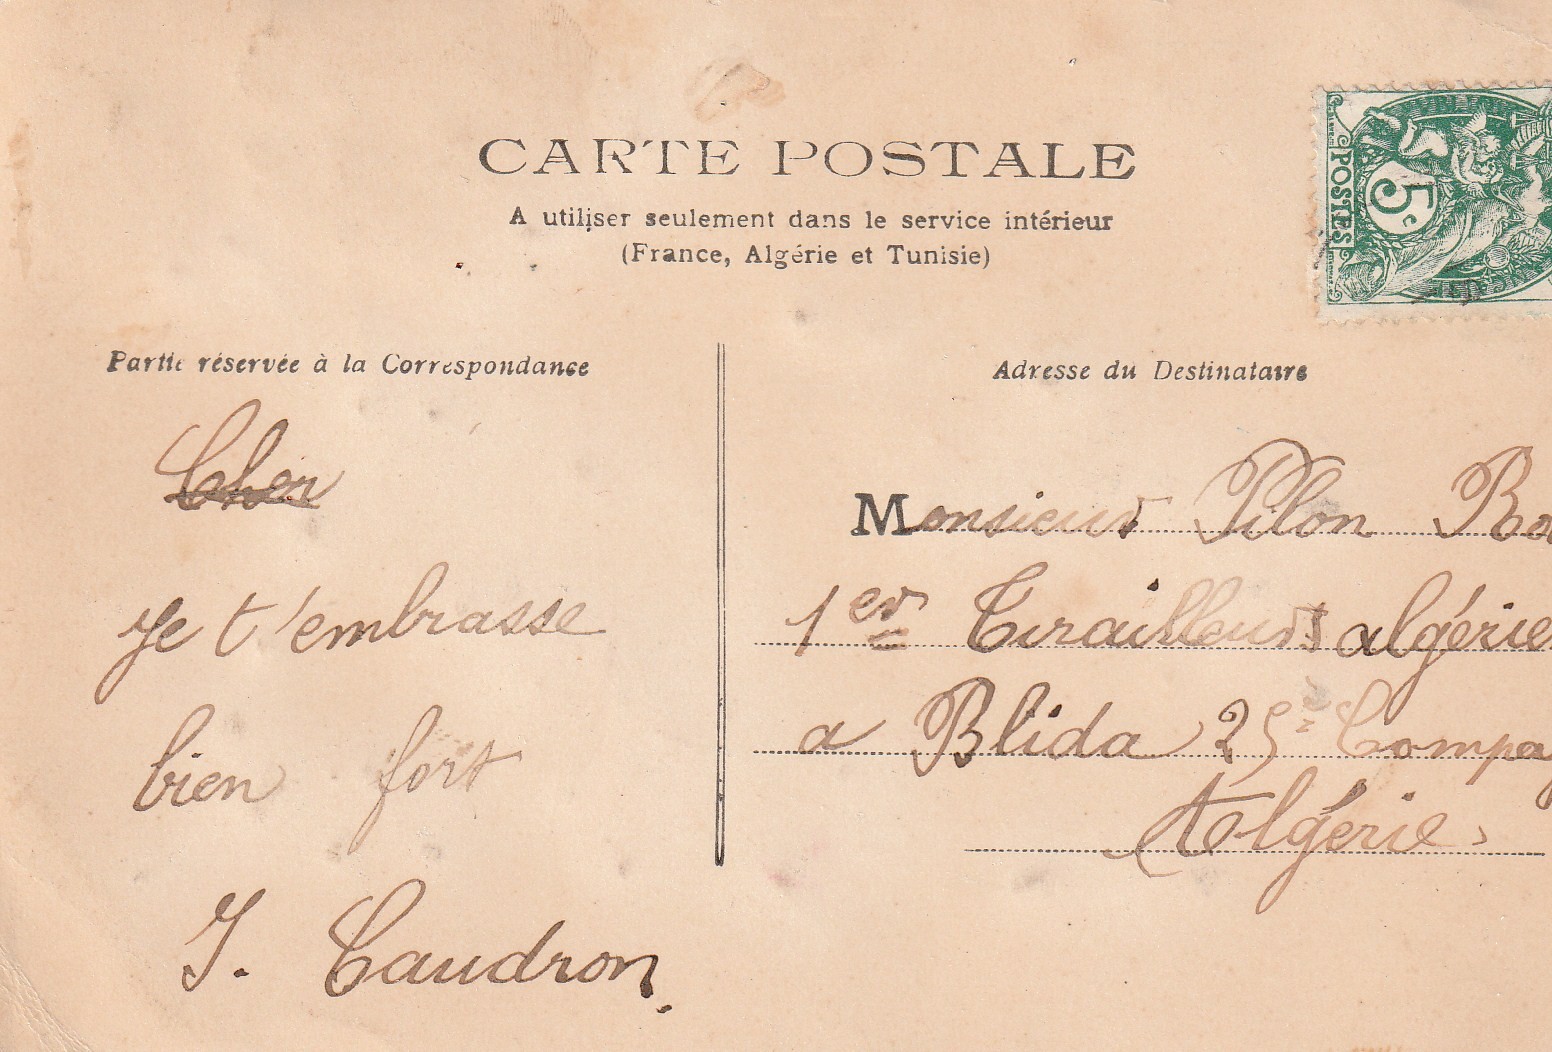 CARTE POSTALE
A utiliser seulement dans le service intérieur
(France, Algérie et Tunisie)
POSTES
5c
Partie réservée à la Correspondance
Cher
je t'embrasse
bien fort
J. Caudron.
Adresse du Destinataire
Monsieur Pilon
1er Tirailleurs algérie
a Blida 25e Compag
Algérie.